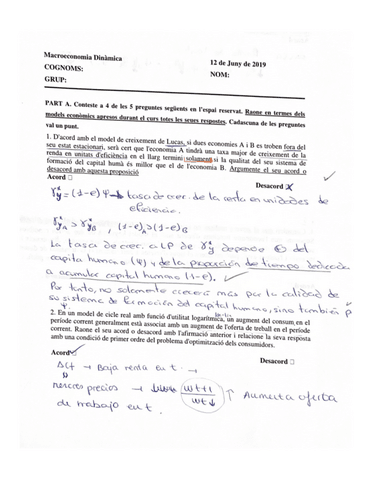 Macroeconomia Dinàmica
12 de Juny de 2019
COGNOMS:
NOM:
GRUP:
PART A. Conteste a 4 de les 5 preguntes següents en l'espai reservat. Raone en termes dels
models econòmics apresos durant el curs totes les seues respostes. Cadascuna de les preguntes
val un punt.
1. D'acord amb el model de creixement de Lucas, si dues economies A i B es troben fora del
seu estat estacionari, serà cert que l'economia A tindrà una taxa major de creixement de la
renda en unitats d'eficiència en el llarg termini solament si la qualitat del seu sistema de
formació del capital humà és millor que el de l'economia B. Argumente el seu acord o
desacord amb aquesta proposició
Acord □
Desacord X
γ*y = (1-e) ψ → tasa de crec. de la renta en unidades de
eficiencia.
γ*yA > γ*yB , (1-e)A > (1-e)B
La tasa de crec. a LP de γ*y depende del
capital humano (ψ) y de la proporción de tiempo dedicada
a acumular capital humano (1-e). ✓
Por tanto, no solamente crecerá más por la calidad de
su sistema de formación del capital humano, sino también
2. En un model de cicle real amb funció d'utilitat logarítmica, un augment del consum en el
període corrent generalment està associat amb un augment de l'oferta de treball en el període
corrent. Raone el seu acord o desacord amb l'afirmació anterior i relacione la seva resposta
amb una condició de primer ordre del problema d'optimització dels consumidors.
Acord
Desacord □
→ Baja renta en t. →
precios → wt+1 / wt ↓ ↑ Aumenta oferta
de trabajo en t.